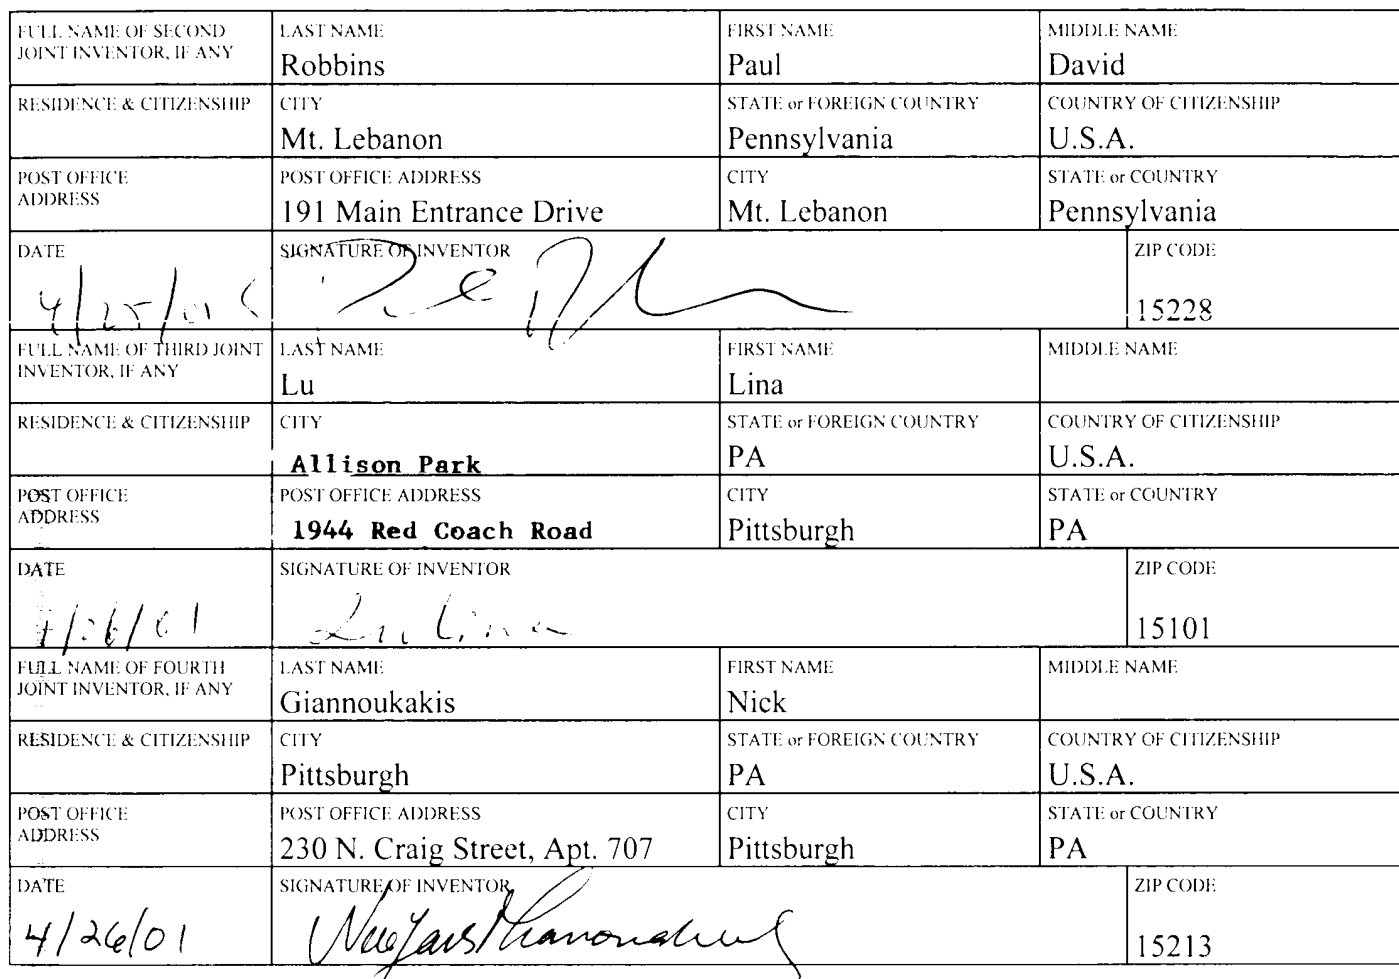 FULL NAME OF SECOND JOINT INVENTOR, IF ANY
LAST NAME
Robbins
FIRST NAME
Paul
MIDDLE NAME
David
RESIDENCE & CITIZENSHIP
CITY
Mt. Lebanon
STATE or FOREIGN COUNTRY
Pennsylvania
COUNTRY OF CITIZENSHIP
U.S.A.
POST OFFICE
ADDRESS
POST OFFICE ADDRESS
191 Main Entrance Drive
CITY
Mt. Lebanon
STATE or COUNTRY
Pennsylvania
DATE
4/25/01
SIGNATURE OF INVENTOR
ZIP CODE
15228
FULL NAME OF THIRD JOINT
INVENTOR, IF ANY
LAST NAME
Lu
FIRST NAME
Lina
MIDDLE NAME
RESIDENCE & CITIZENSHIP
CITY
Allison Park
STATE or FOREIGN COUNTRY
PA
COUNTRY OF CITIZENSHIP
U.S.A.
POST OFFICE
ADDRESS
POST OFFICE ADDRESS
1944 Red Coach Road
CITY
Pittsburgh
STATE or COUNTRY
PA
DATE
SIGNATURE OF INVENTOR
Lu Lina
ZIP CODE
15101
FULL NAME OF FOURTH
JOINT INVENTOR, IF ANY
LAST NAME
Giannoukakis
FIRST NAME
Nick
MIDDLE NAME
RESIDENCE & CITIZENSHIP
CITY
Pittsburgh
STATE or FOREIGN COUNTRY
PA
COUNTRY OF CITIZENSHIP
U.S.A.
POST OFFICE
ADDRESS
POST OFFICE ADDRESS
230 N. Craig Street, Apt. 707
CITY
Pittsburgh
STATE or COUNTRY
PA
DATE
4/26/01
SIGNATURE OF INVENTOR
ZIP CODE
15213